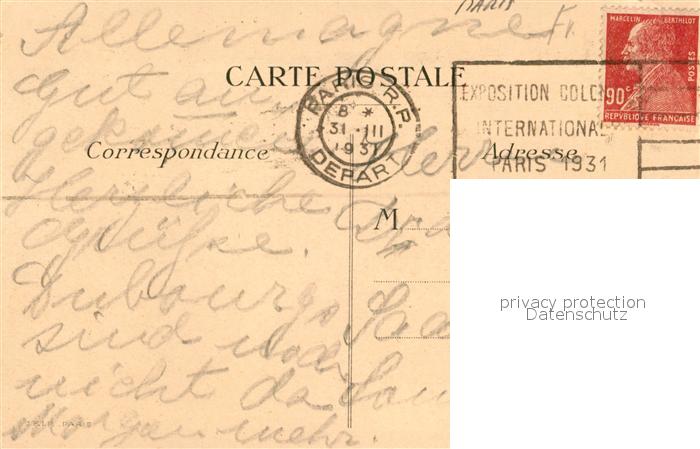 PARIS
Allemagne
MARCELIN BERTHELOT
POSTES
90c
REPVBLIQVE FRANÇAISE
CARTE POSTALE
gut an
PARIS R.P.
8 *
31 - III
1931
DEPART
EXPOSITION COLO
INTERNATIONAL
PARIS 1931
Correspondance
Adresse
Herzliche
M
Grüße.
Dubourgs
sind noch
nicht da
Morgen mehr.
privacy protection
Datenschutz